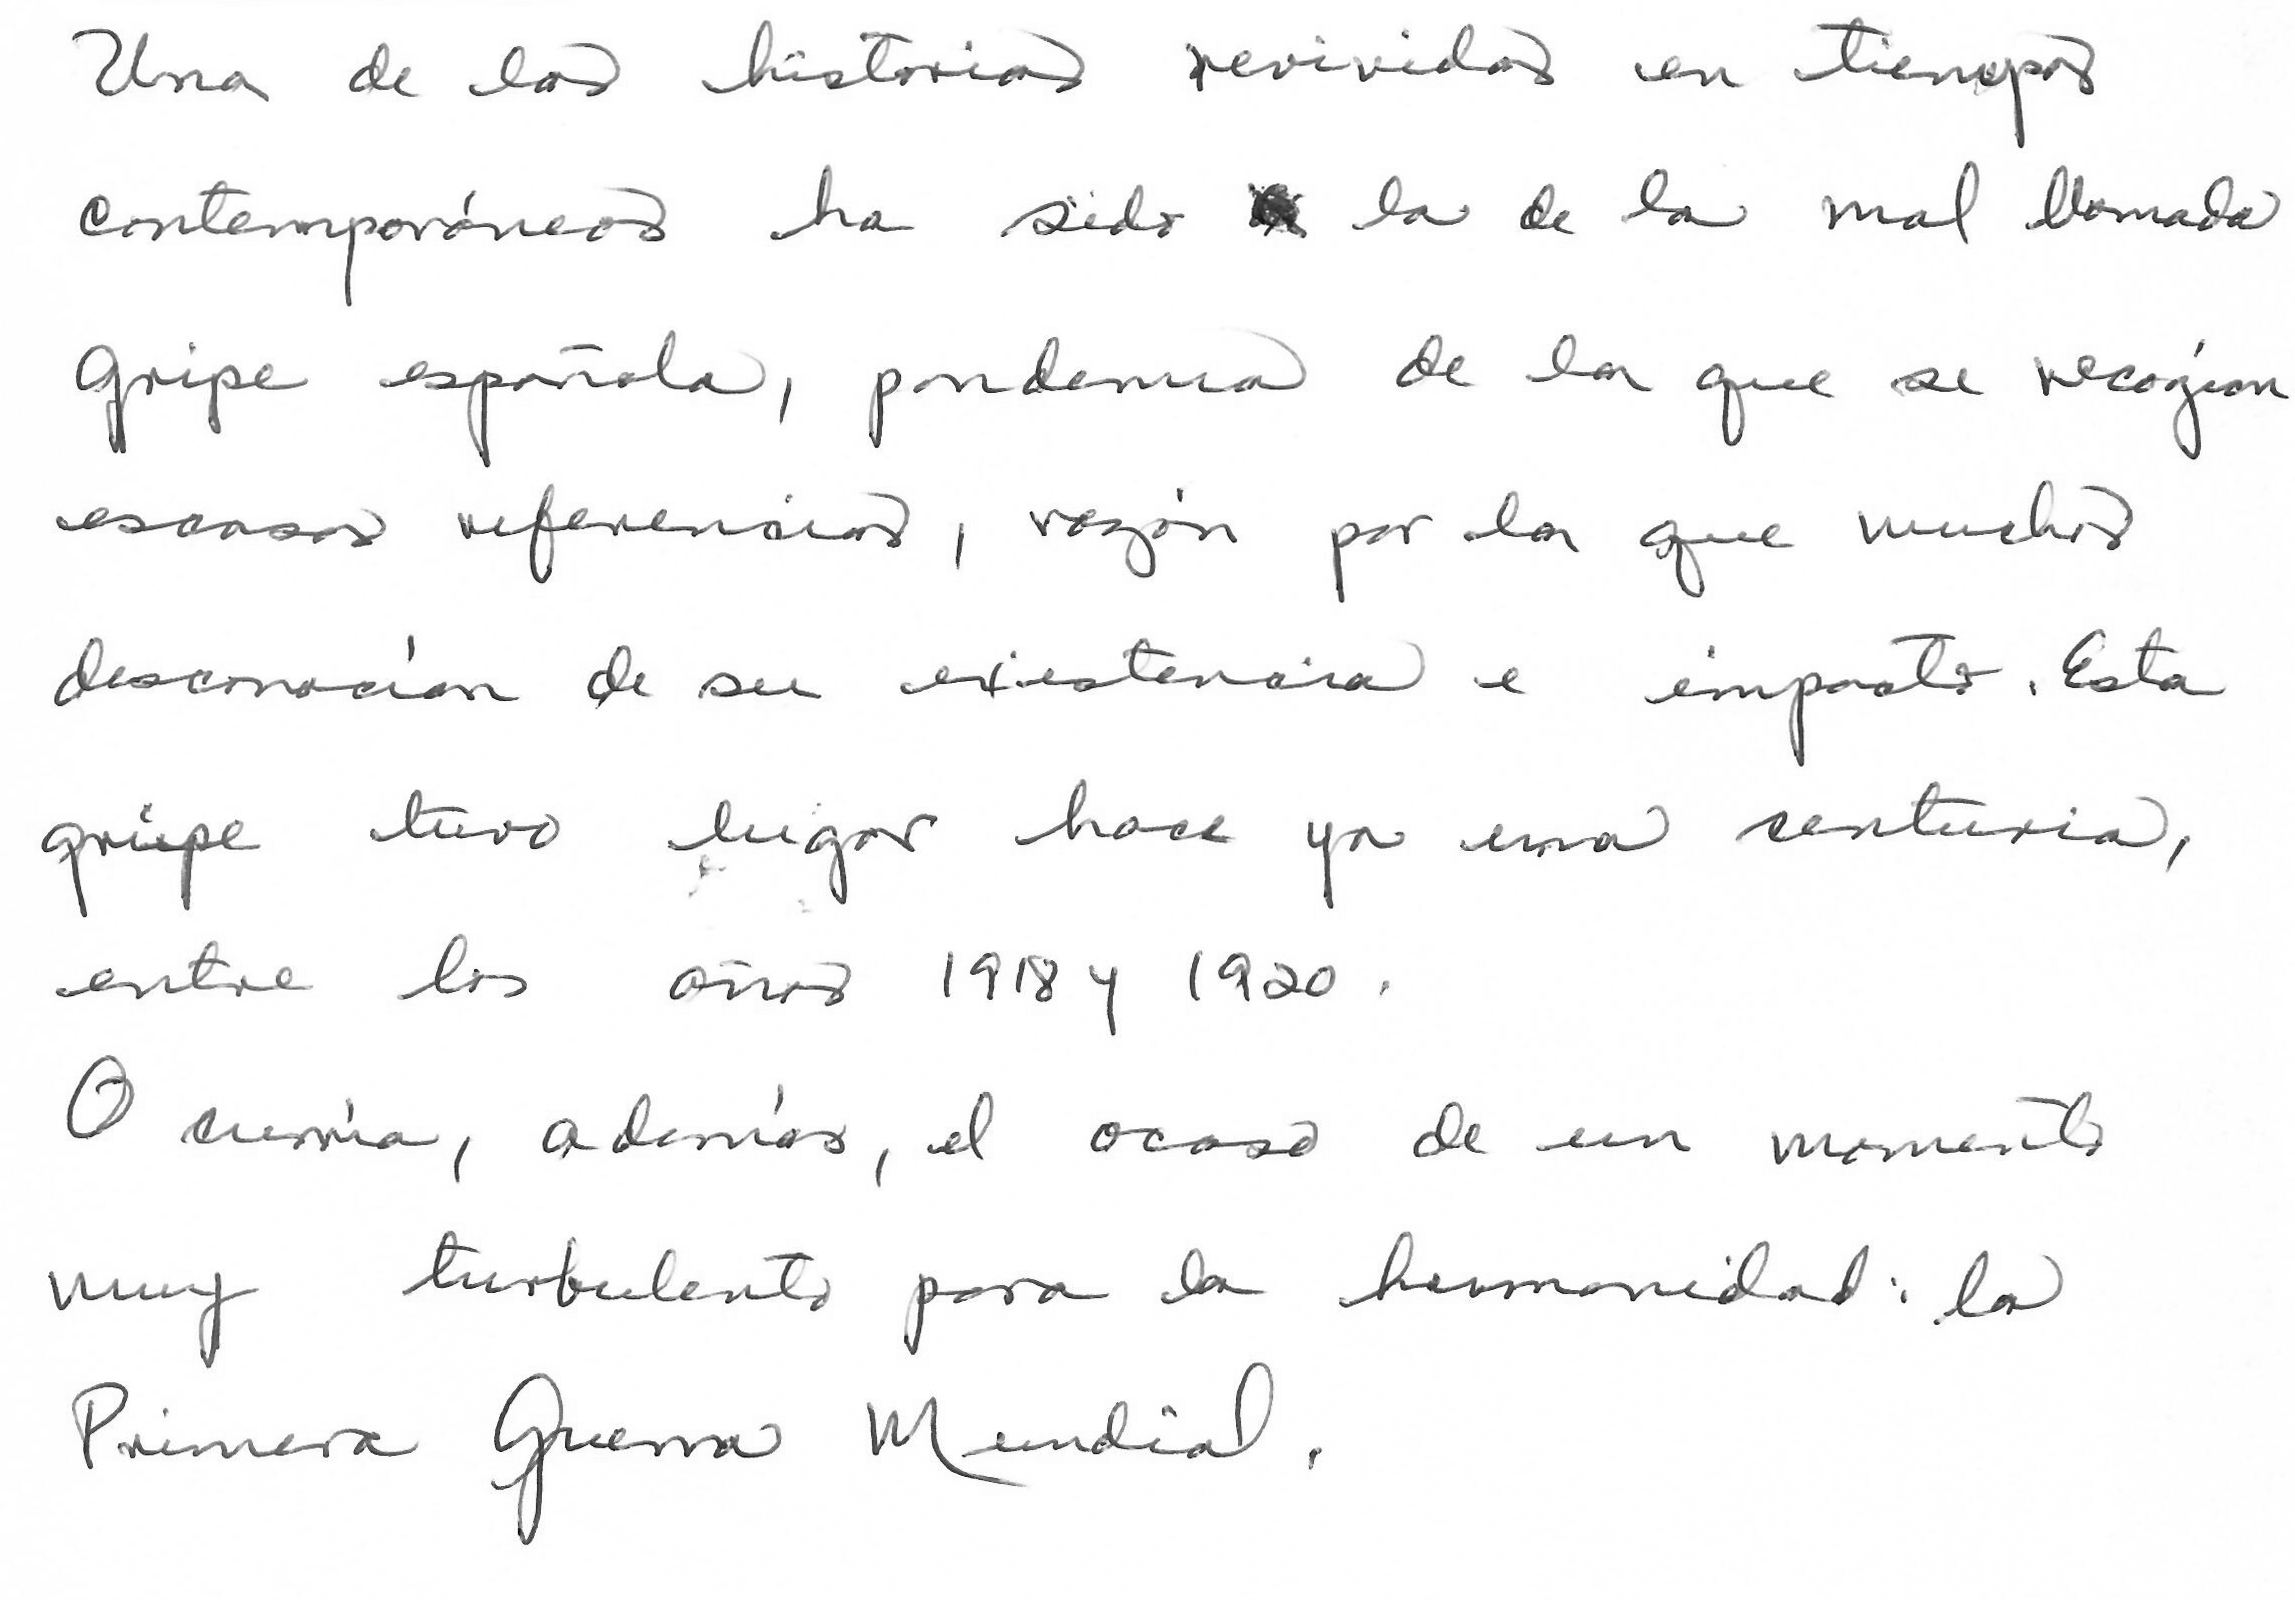 Una de las historias revividas en tiempos
contemporáneos ha sido la de la mal llamada
gripe española, pandemia de la que se recogían
escasas referencias, razón por la que muchos
desconocían de su existencia e impacto. Esta
gripe tuvo lugar hace ya una centuria,
entre los años 1918 y 1920.
Ocurría, además, el ocaso de un momento
muy turbulento para la humanidad: la
Primera Guerra Mundial.